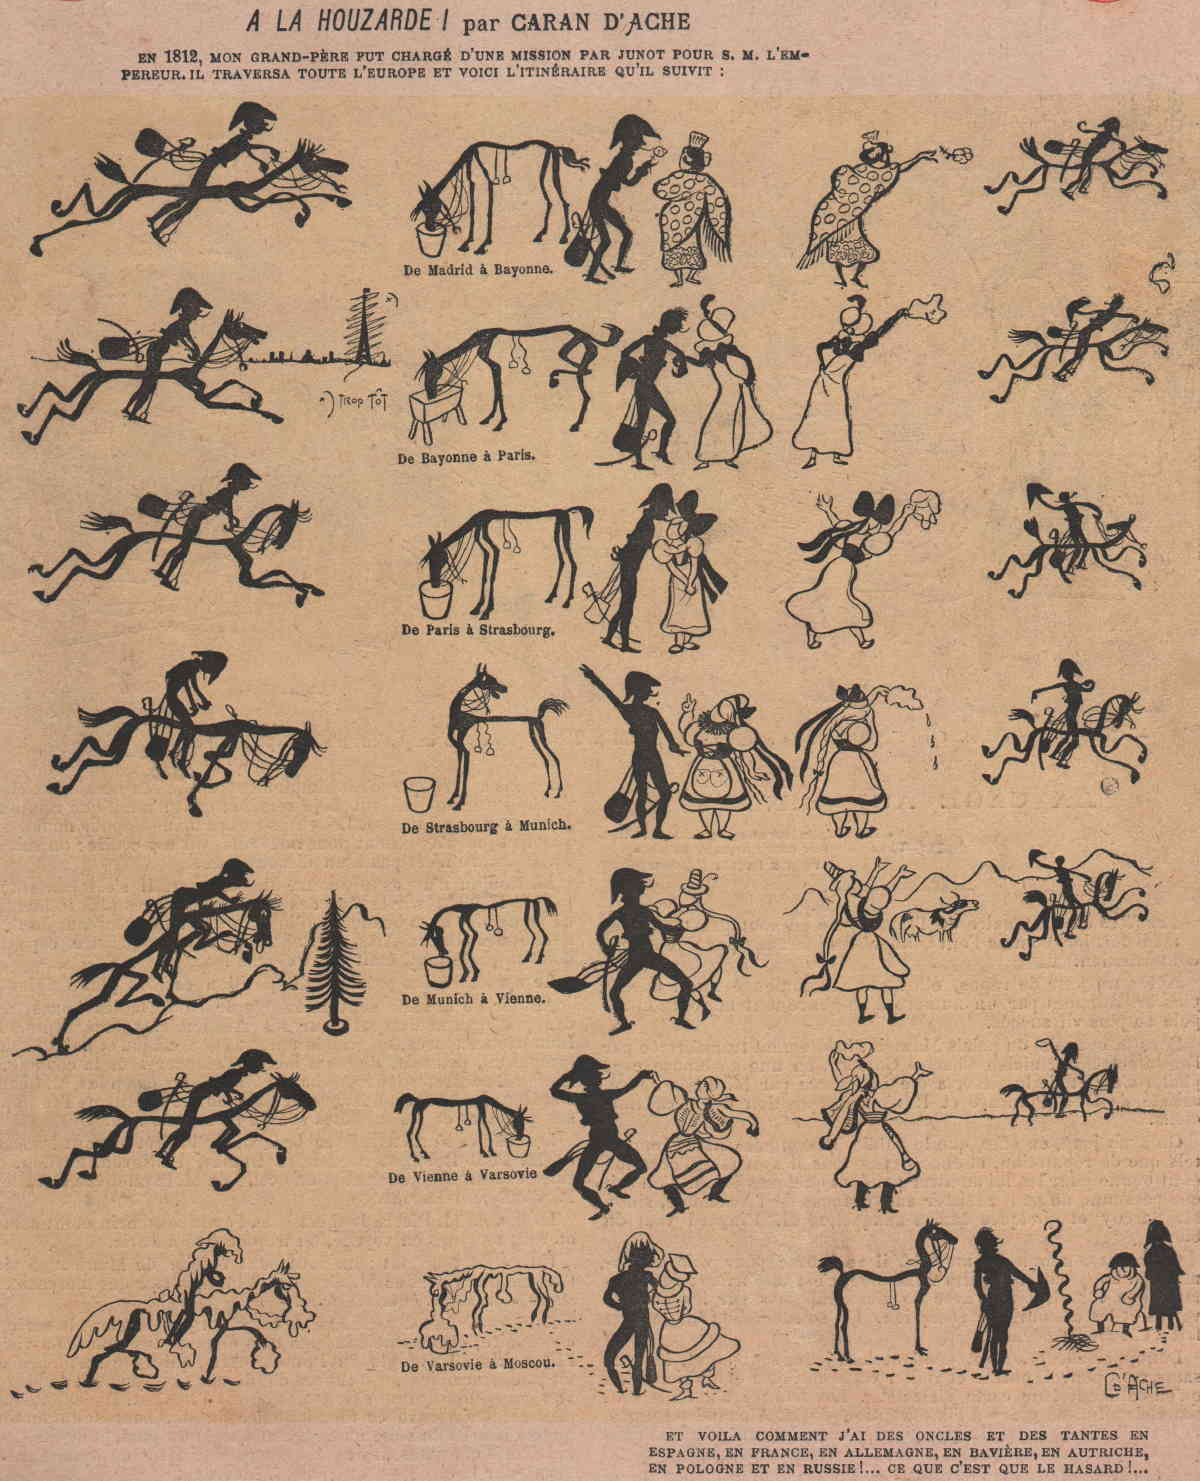 A LA HOUZARDE ! par CARAN D'ACHE
EN 1812, MON GRAND-PÈRE FUT CHARGÉ D'UNE MISSION PAR JUNOT POUR S. M. L'EM-
PEREUR. IL TRAVERSA TOUTE L'EUROPE ET VOICI L'ITINÉRAIRE QU'IL SUIVIT :
De Madrid à Bayonne.
TROP TÔT
De Bayonne à Paris.
De Paris à Strasbourg.
De Strasbourg à Munich.
De Munich à Vienne.
De Vienne à Varsovie
De Varsovie à Moscou.
C D'ACHE
ET VOILA COMMENT J'AI DES ONCLES ET DES TANTES EN
ESPAGNE, EN FRANCE, EN ALLEMAGNE, EN BAVIÈRE, EN AUTRICHE,
EN POLOGNE ET EN RUSSIE !... CE QUE C'EST QUE LE HASARD !...